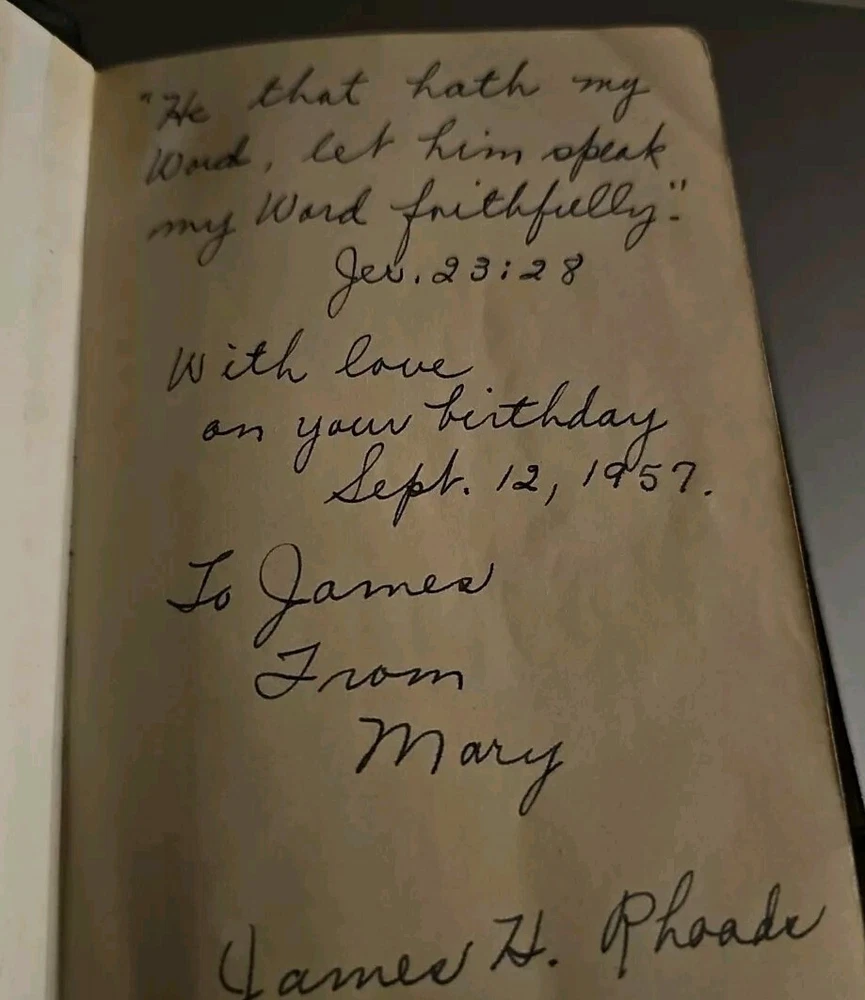 "He that hath my
Word, let him speak
my Word faithfully."
Jer. 23:28
With love
on your birthday
Sept. 12, 1957.
To James
From
Mary
James H. Rhoads